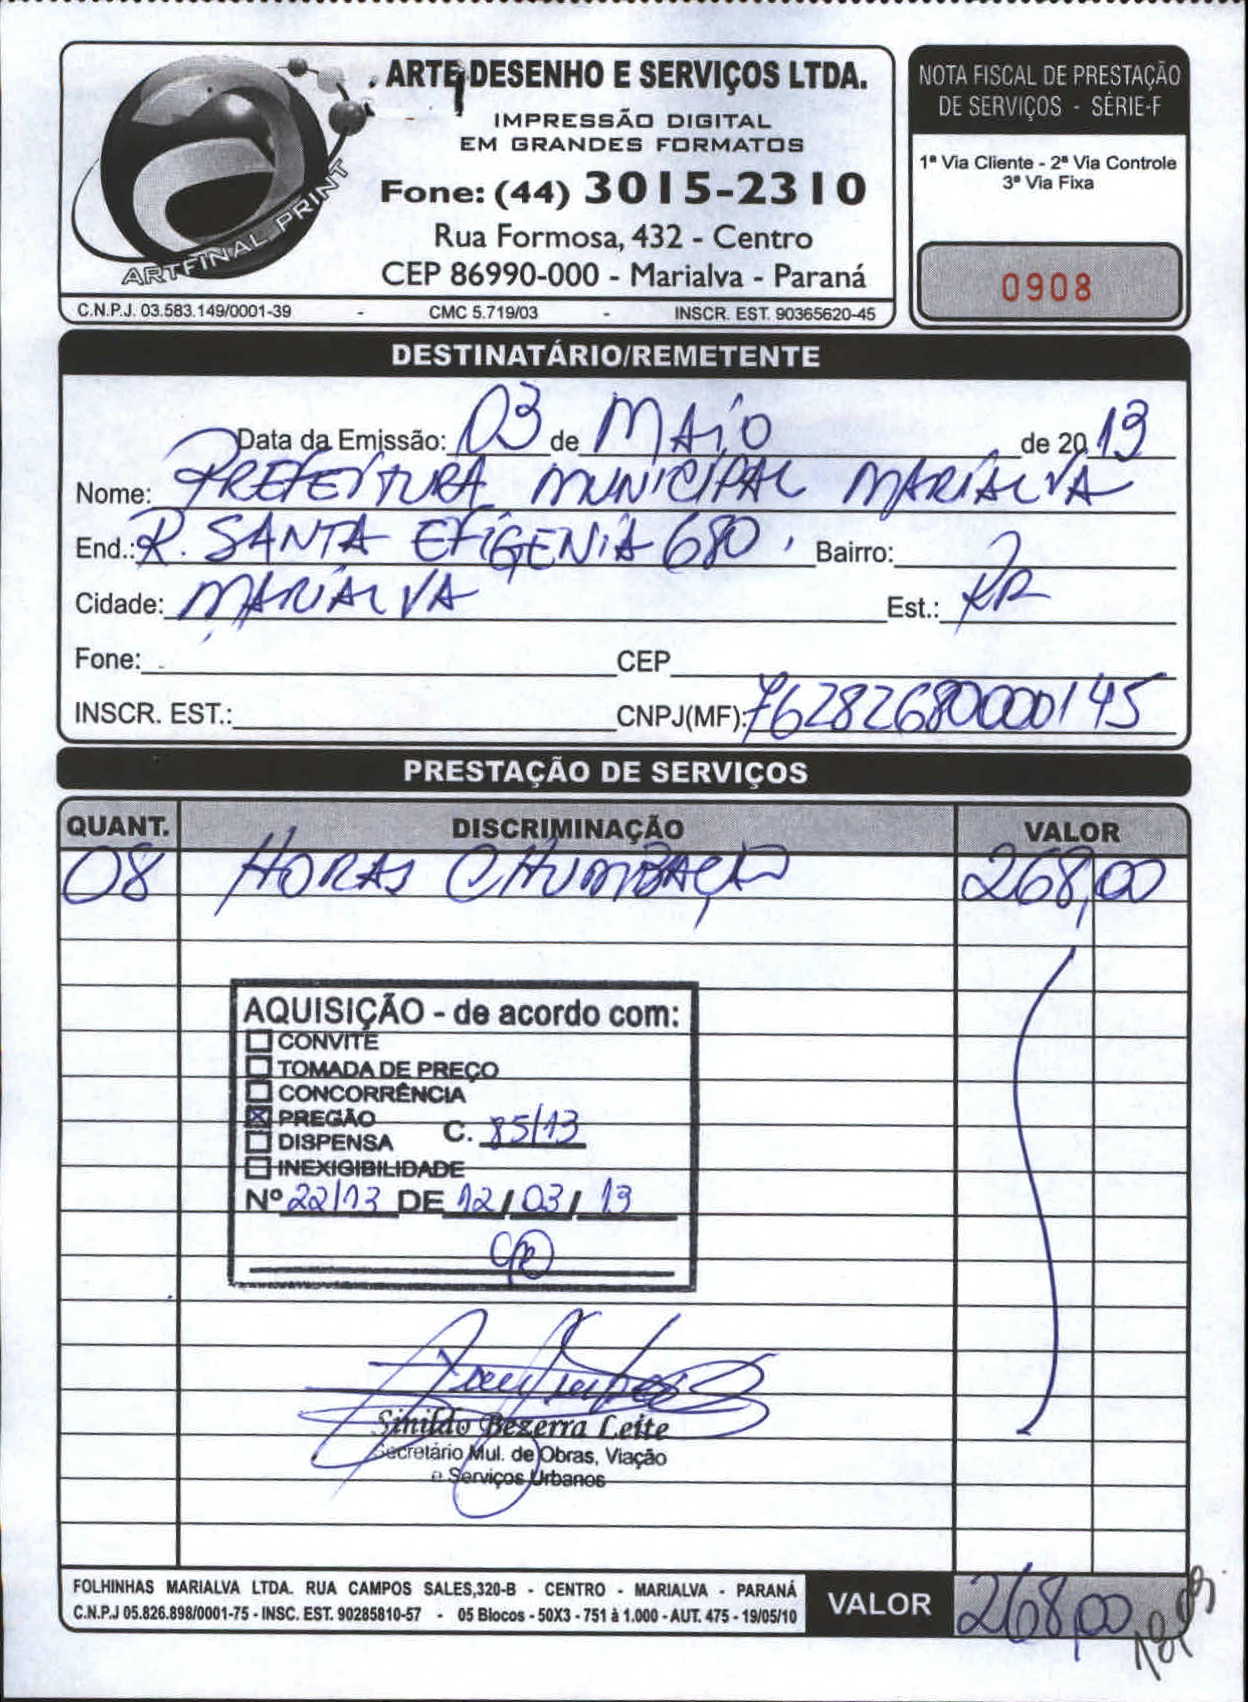 ARTE DESENHO E SERVIÇOS LTDA.
IMPRESSÃO DIGITAL
EM GRANDES FORMATOS
Fone: (44) 3015-2310
Rua Formosa, 432 - Centro
CEP 86990-000 - Marialva - Paraná
ARTFINAL PRINT
C.N.P.J. 03.583.149/0001-39 - CMC 5.719/03 - INSCR. EST. 90365620-45
NOTA FISCAL DE PRESTAÇÃO
DE SERVIÇOS - SÉRIE-F
1ª Via Cliente - 2ª Via Controle
3ª Via Fixa
0908
DESTINATÁRIO/REMETENTE
Data da Emissão: 03 de MAIO de 2013
Nome: PREFEITURA MUNICIPAL MARIALVA
End.: R. SANTA EFIGENIA 680. Bairro:
Cidade: MARIALVA Est.: PR
Fone: CEP
INSCR. EST.: CNPJ(MF): 76282680000145
PRESTAÇÃO DE SERVIÇOS
QUANT. DISCRIMINAÇÃO VALOR
08 HORAS CHUMBAÇÃO 268,00
AQUISIÇÃO - de acordo com:
CONVITE
TOMADA DE PREÇO
CONCORRÊNCIA
PREGÃO
DISPENSA C. 85/13
INEXIGIBILIDADE
Nº 22/13 DE 12/03/13
Sinildo Bezerra Leite
Secretário Mul. de Obras, Viação
e Serviços Urbanos
FOLHINHAS MARIALVA LTDA. RUA CAMPOS SALES,320-B - CENTRO - MARIALVA - PARANÁ
C.N.P.J 05.826.898/0001-75 - INSC. EST. 90285810-57 - 05 Blocos - 50X3 - 751 à 1.000 - AUT. 475 - 19/05/10
VALOR 268,00